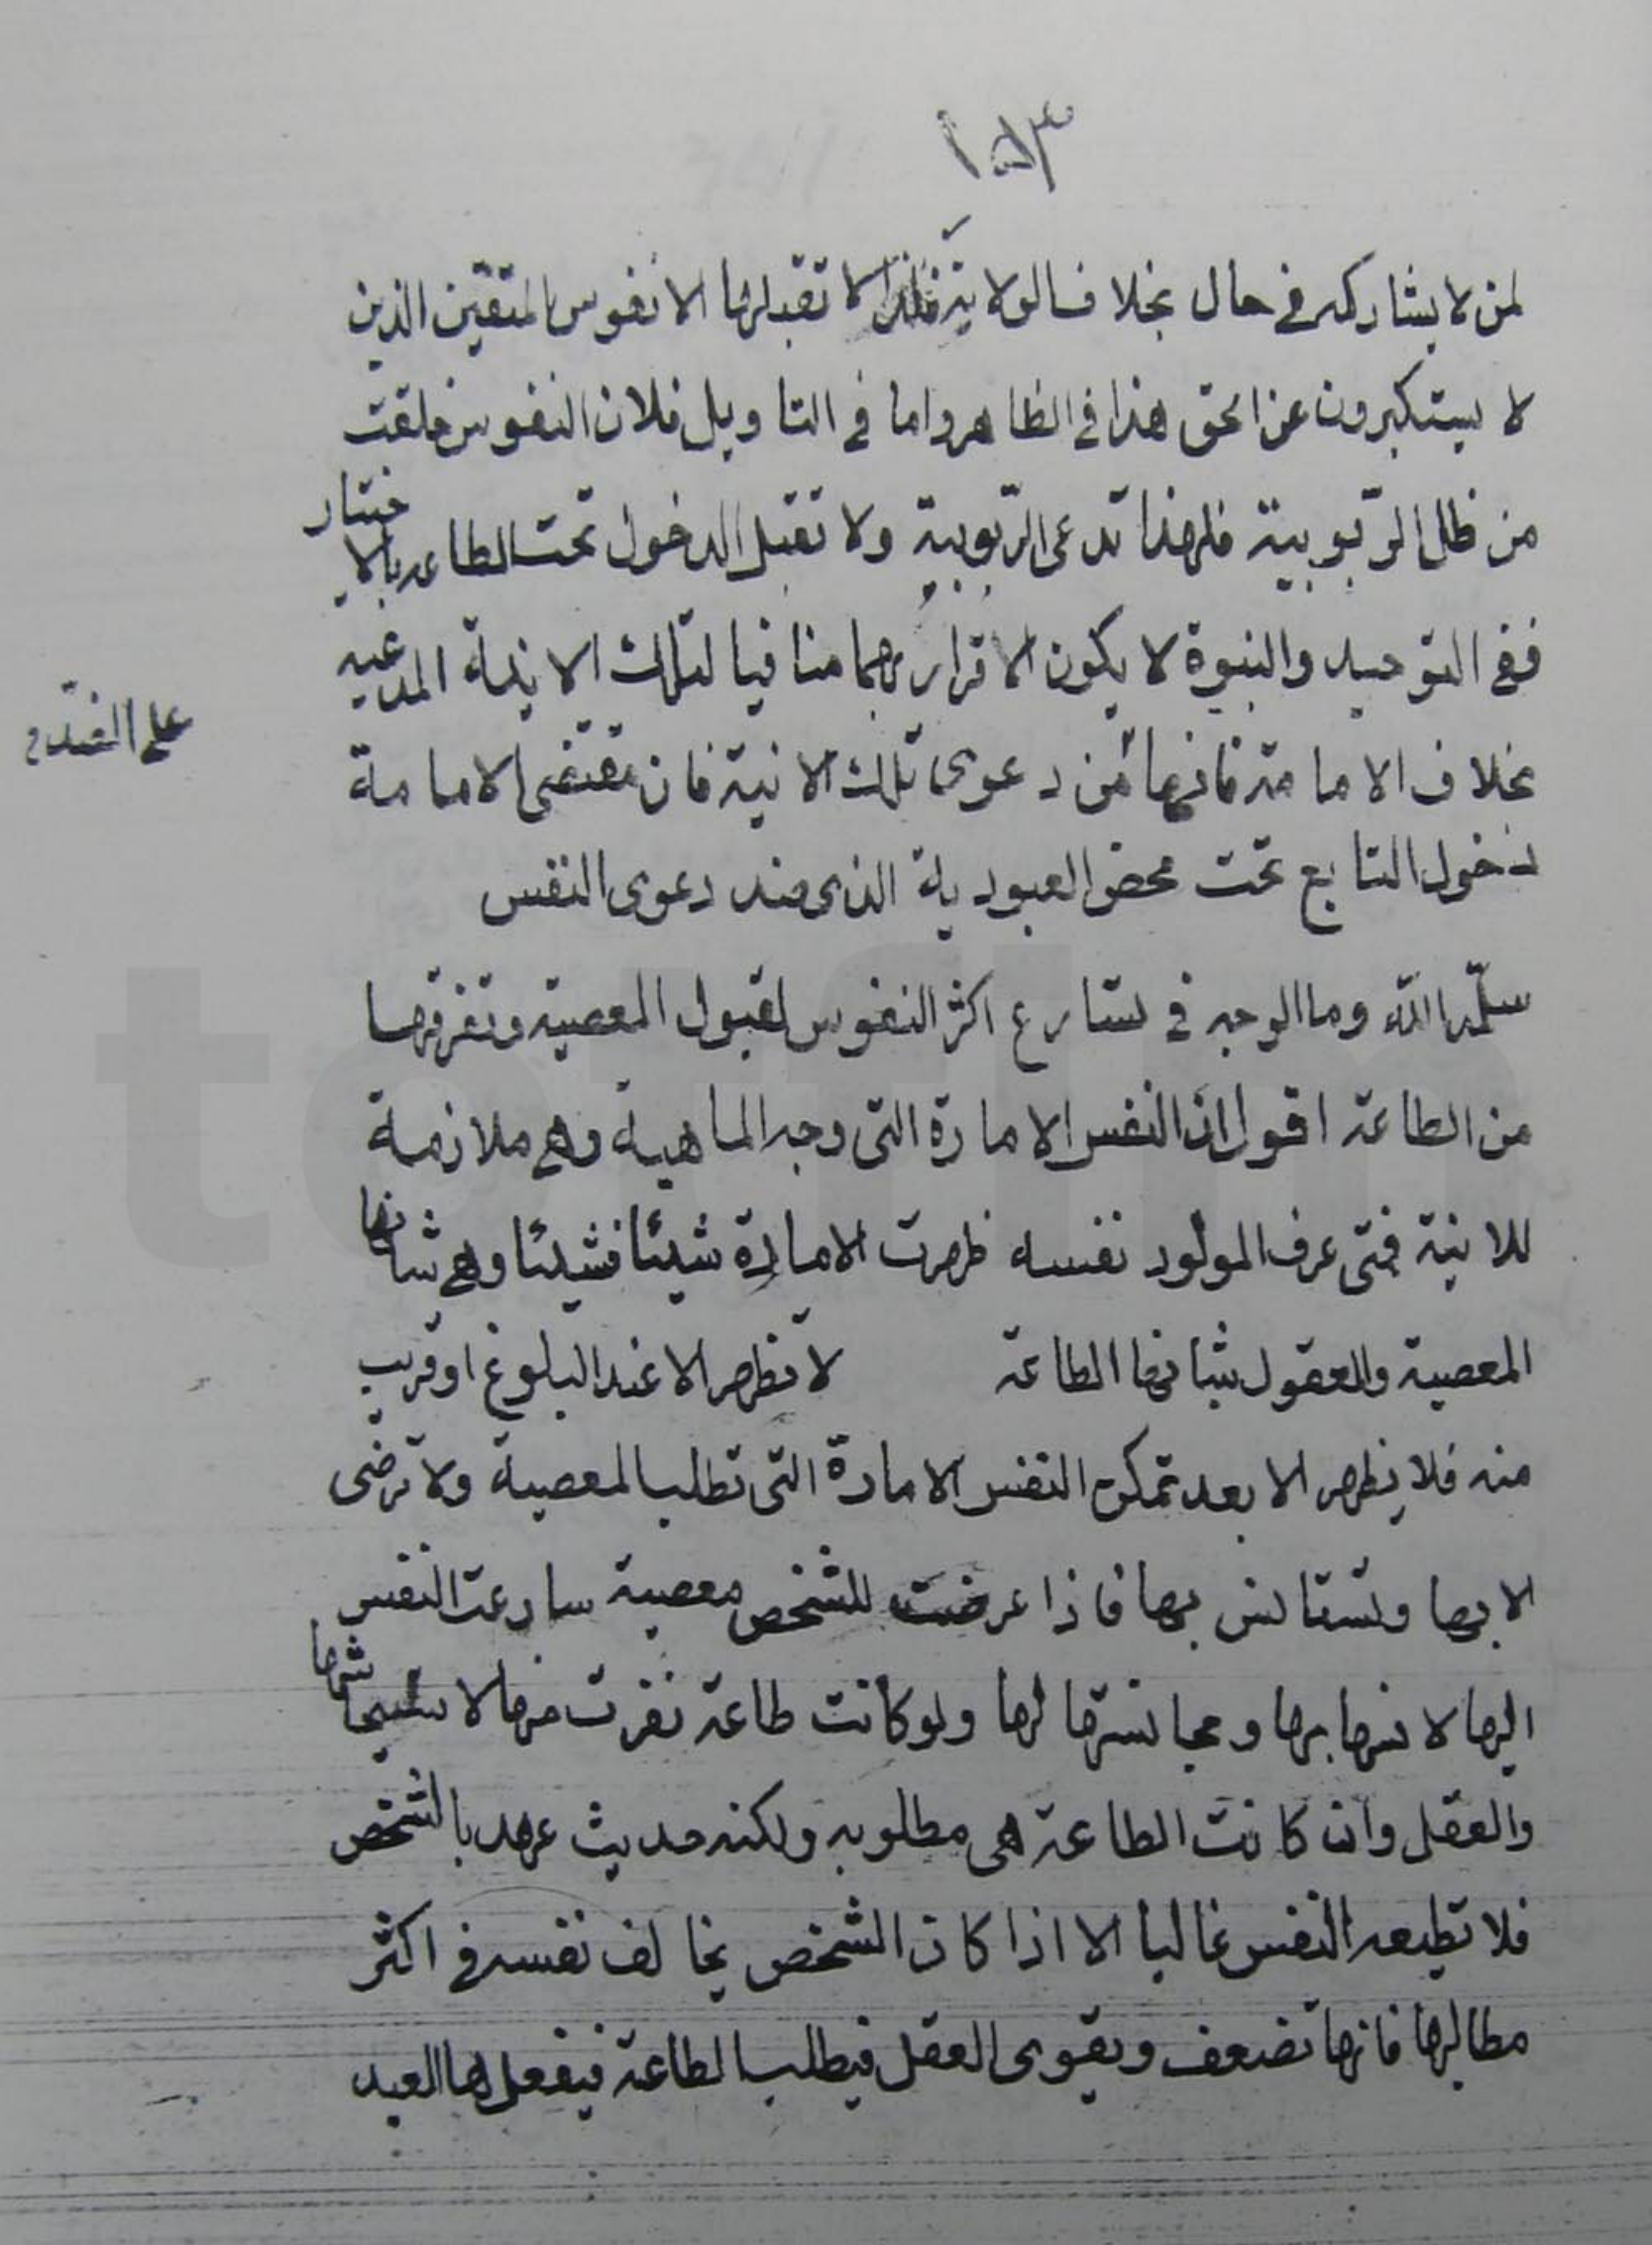 ١٥٣
لمن لا يشاركه في حال بخلاف الولاية فلذا لا تقبلها الا نفوس المتقين الذين
لا يستكبرون عن الحق هذا في الظاهر واما في التاويل فلان النفوس خلقت
من ظل الربوبية فلهذا تدعى الربوبية ولا تقبل الدخول تحت الطاعه بالاختيار
ففي التوحيد والنبوة لا يكون الاقرار بهما منافيا لتلك الانية المدعيه
بخلاف الامامة فانها من دعوى تلك الانية فان مقتضى الامامة
على الضد
دخول التابع تحت محض العبودية الذى ضد دعوى النفس
سلمه الله وما الوجه في تسارع اكثر النفوس لقبول المعصية وتفرقها
من الطاعة اقول ان النفس الامارة التى وجه الماهية وهي ملازمة
للانية فمتى عرف المولود نفسه ظهرت الامارة شيئا فشيئا وهي شانها
المعصية والعقول شانها الطاعة لا تظهر الا عند البلوغ او قريب
منه فلا يظهر الا بعد تمكن النفس الامارة التى تطلب المعصية ولا ترضى
الا بها وتستانس بها فاذا عرضت للشخص معصية سارعت النفس
اليها لانسها بها ومجانستها لها ولو كانت طاعة نفرت منها لاستيحاشها
والعقل وان كانت الطاعة هى مطلوبه ولكنه حديث عهد بالشخص
فلا تطيعه النفس غالبا الا اذا كان الشخص يخالف نفسه في اكثر
مطالبها فانها تضعف ويقوى العقل فيطلب الطاعة فيفعلها العبد